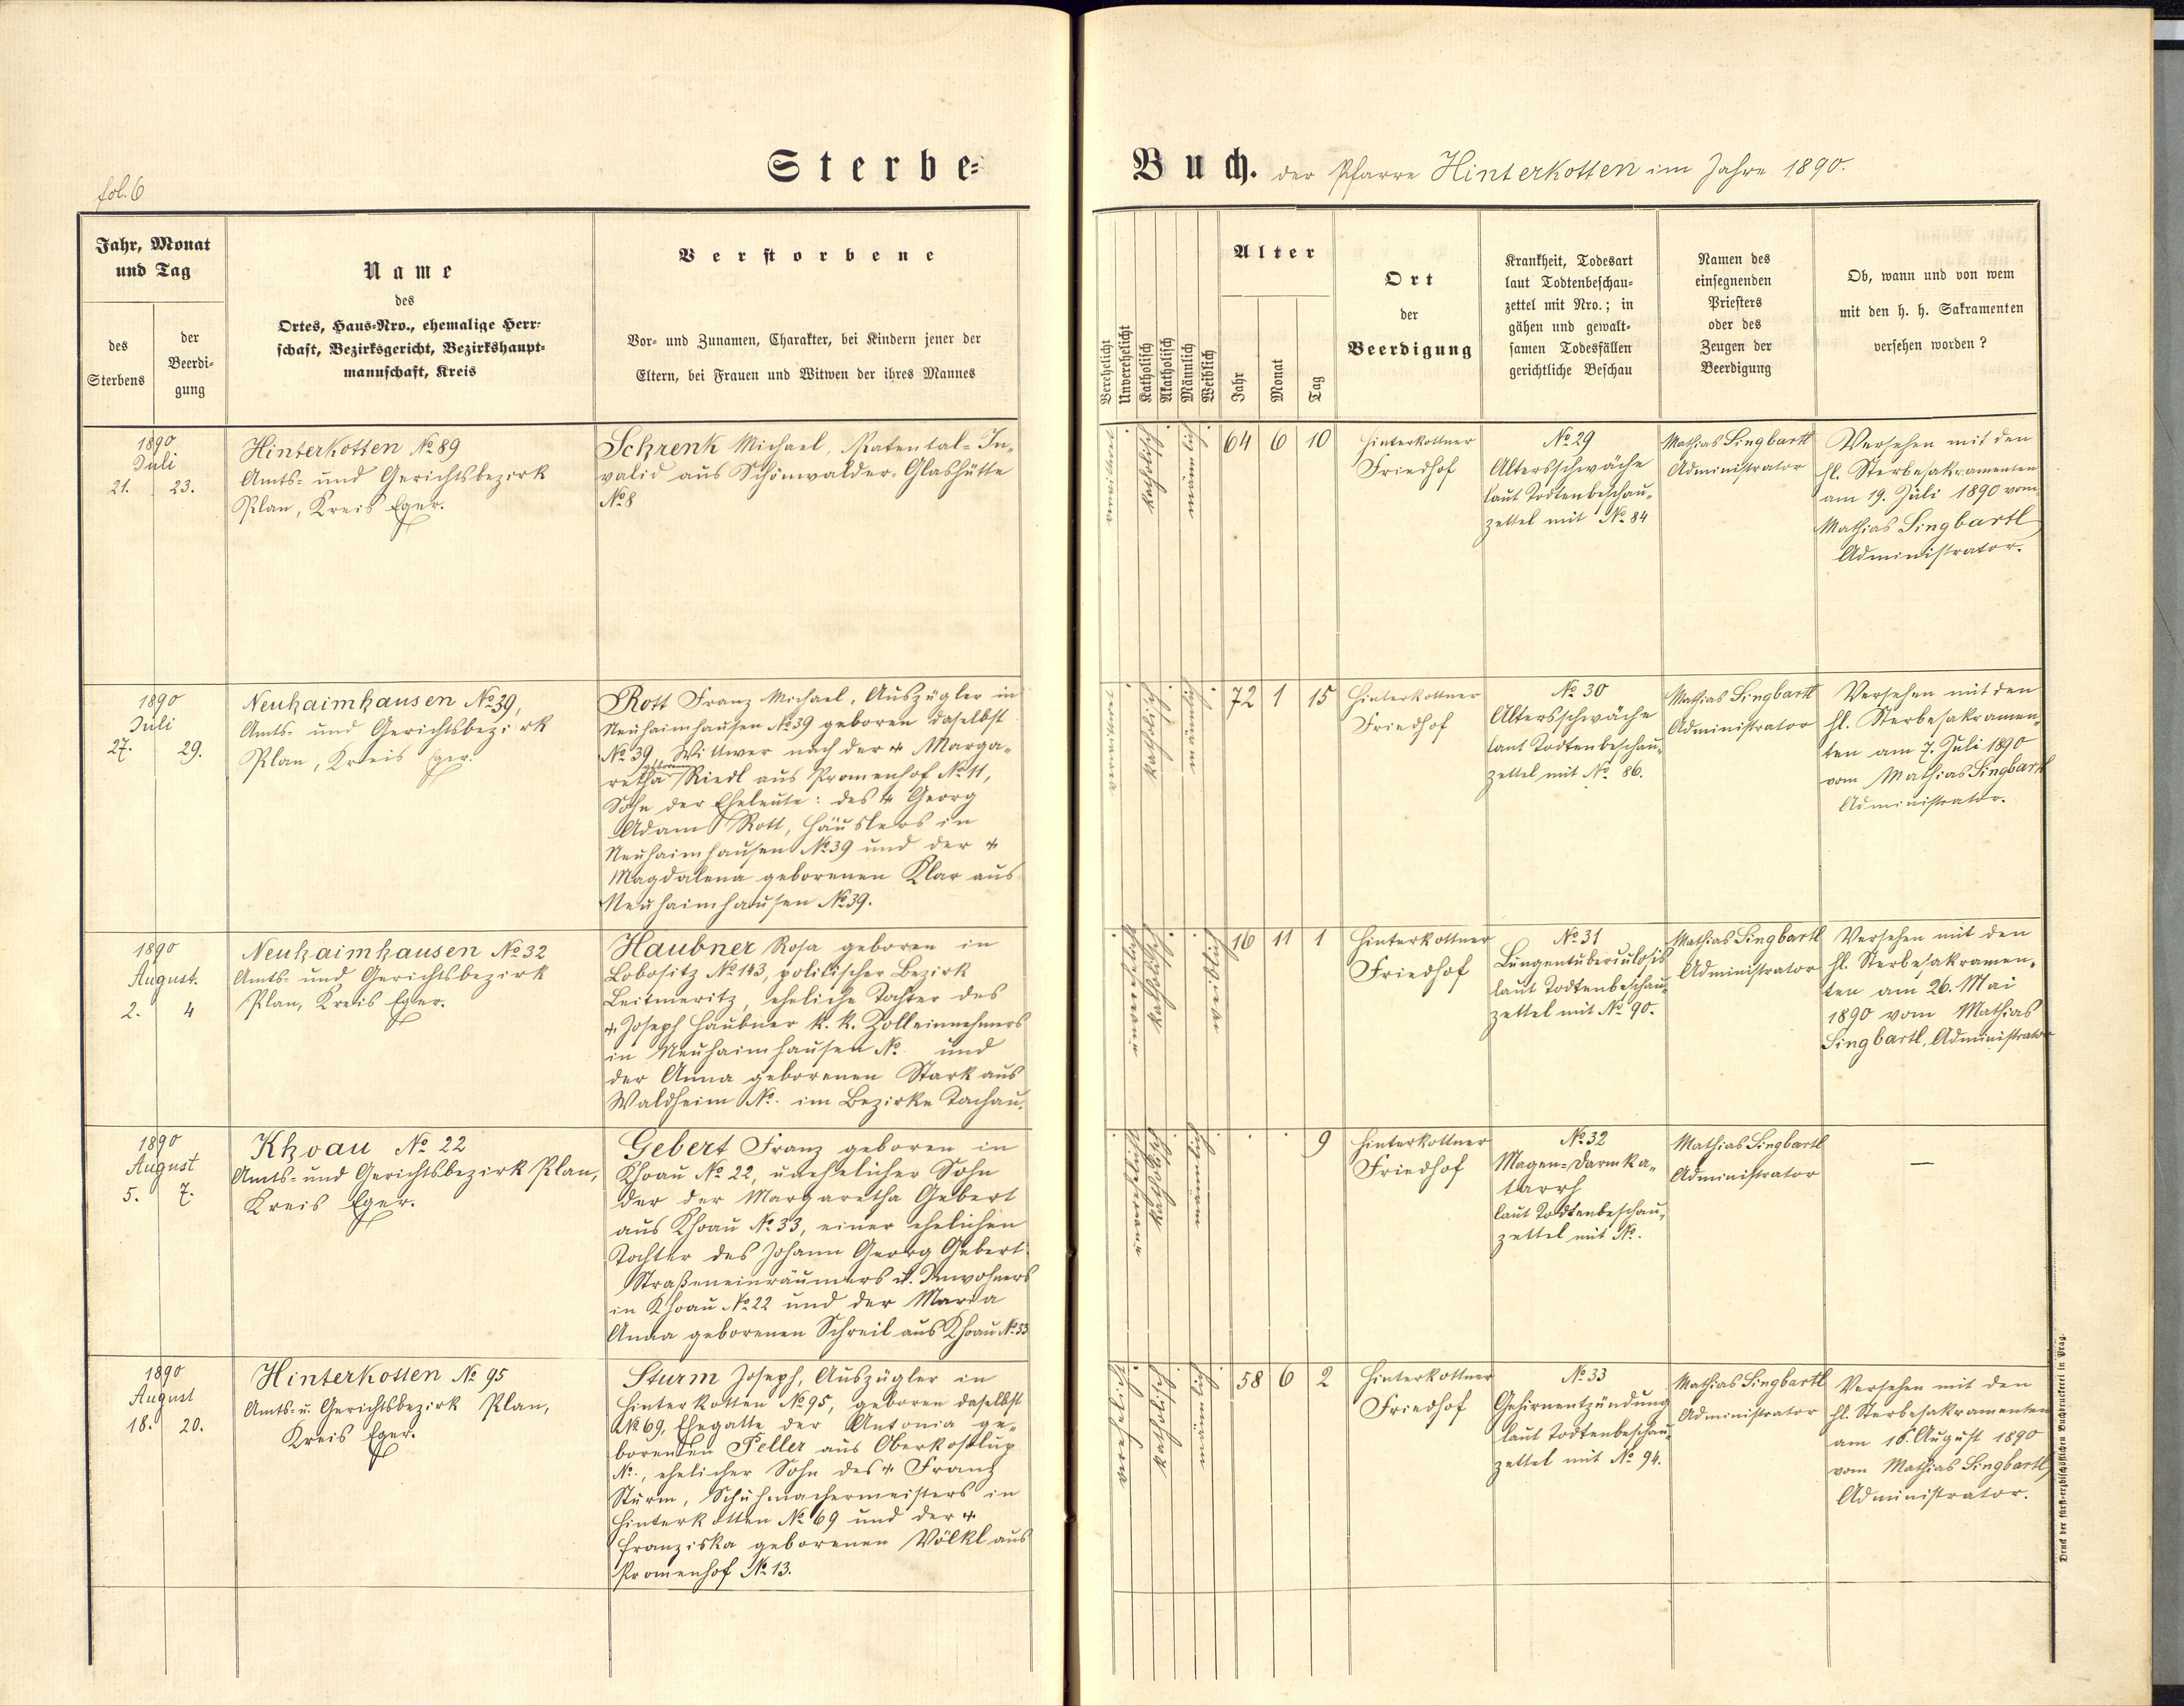 fol. 6
Sterbe=
Buch. der Pfarre Hinterkotten im Jahre 1890.
Jahr, Monat
und Tag
des
Sterbens
der
Beerdi=
gung
Name
des
Ortes, Haus=Nro., ehemalige Herr=
schaft, Bezirksgericht, Bezirkshaupt=
mannschaft, Kreis
Verstorbene
Vor= und Zunamen, Charakter, bei Kindern jener der
Eltern, bei Frauen und Witwen der ihres Mannes
Verehelicht
Unverehelicht
Katholisch
Akatholisch
Männlich
Weiblich
Alter
Jahr
Monat
Tag
Ort
der
Beerdigung
Krankheit, Todesart
laut Todtenbeschau=
zettel mit Nro.; in
gähen und gewalt=
samen Todesfällen
gerichtliche Beschau
Namen des
einsegnenden
Priesters
oder des
Zeugen der
Beerdigung
Ob, wann und von wem
mit den h. h. Sakramenten
versehen worden?
1890
Juli
21. 23.
Hinterkotten No 89
Amts- und Gerichtsbezirk
Plan, Kreis Eger.
Schrenk Michael, Patental-In-
valid aus Schönwalder-Glashütte
No 8
katholisch
männlich
64 6 10
Hinterkottner
Friedhof
No 29
Altersschwäche
laut Todtenbeschau-
zettel mit No 84
Mathias Singbartl
Administrator
Versehen mit den
hl. Sterbesakramenten
am 19. Juli 1890 vom
Mathias Singbartl
Administrator.
1890
Juli
27. 29.
Neuhaimhausen No 39,
Amts- und Gerichtsbezirk
Plan, Kreis Eger.
Rott Franz Michael, Auszügler in
Neuhaimhausen No 39 geboren daselbst
No 39, Wittwer nach der + Marga-
retha geborenen Riedl aus Promenhof No 11,
Sohn der Eheleute: des + Georg
Adam Rott, Häuslers in
Neuhaimhausen No 39 und der +
Magdalena geborenen Klar aus
Neuhaimhausen No 39.
katholisch
männlich
72 1 15
Hinterkottner
Friedhof
No 30
Altersschwäche
laut Todtenbeschau-
zettel mit No 86.
Mathias Singbartl
Administrator
Versehen mit den
hl. Sterbesakramen-
ten am 7. Juli 1890
vom Mathias Singbartl
Administrator.
1890
August.
2. 4
Neuhaimhausen No 32
Amts- und Gerichtsbezirk
Plan, Kreis Eger.
Haubner Rosa geboren in
Lobositz No 143, politischer Bezirk
Leitmeritz, eheliche Tochter des
+ Joseph Haubner k. k. Zolleinnehmers
in Neuhaimhausen No. und
der Anna geborenen Stark aus
Waldheim No. im Bezirke Tachau.
unverehelicht
katholisch
weiblich
16 11 1
Hinterkottner
Friedhof
No 31
Lungentuberculosis
laut Todtenbeschau-
zettel mit No 90.
Mathias Singbartl
Administrator
Versehen mit den
hl. Sterbesakramen-
ten am 26. Mai
1890 vom Mathias
Singbartl, Administrator
1890
August
5. 7.
Khoau No 22
Amts- und Gerichtsbezirk Plan,
Kreis Eger.
Gebert Franz geboren in
Khoau No 22, unehelicher Sohn
der der Margaretha Gebert
aus Khoau No 33, einer ehelichen
Tochter des Johann Georg Gebert
Straßeneinräumers u. Inwohners
in Khoau No 22 und der Maria
Anna geborenen Schreil aus Khoau No 33
unverehelicht
katholisch
männlich
9
Hinterkottner
Friedhof
No 32
Magen-Darmka-
tarrh
laut Todtenbeschau-
zettel mit No.
Mathias Singbartl
Administrator
—
1890
August
18. 20.
Hinterkotten No 95
Amts- u. Gerichtsbezirk Plan,
Kreis Eger.
Sturm Joseph, Auszügler in
Hinterkotten No 95, geboren daselbst
No 69, Ehegatte der Antonia ge-
borenen Peller aus Oberkostlup
No., ehelicher Sohn des + Franz
Sturm, Schuhmachermeisters in
Hinterkotten No 69 und der +
Franziska geborenen Völkl aus
Promenhof No 13.
verehelicht
katholisch
männlich
58 6 2
Hinterkottner
Friedhof
No 33
Gehirnentzündung
laut Todtenbeschau-
zettel mit No 94.
Mathias Singbartl
Administrator
Versehen mit den
hl. Sterbesakramenten
am 16. August 1890
vom Mathias Singbartl,
Administrator.
Druck der fürst-erzbischöflichen Buchdruckerei in Prag.